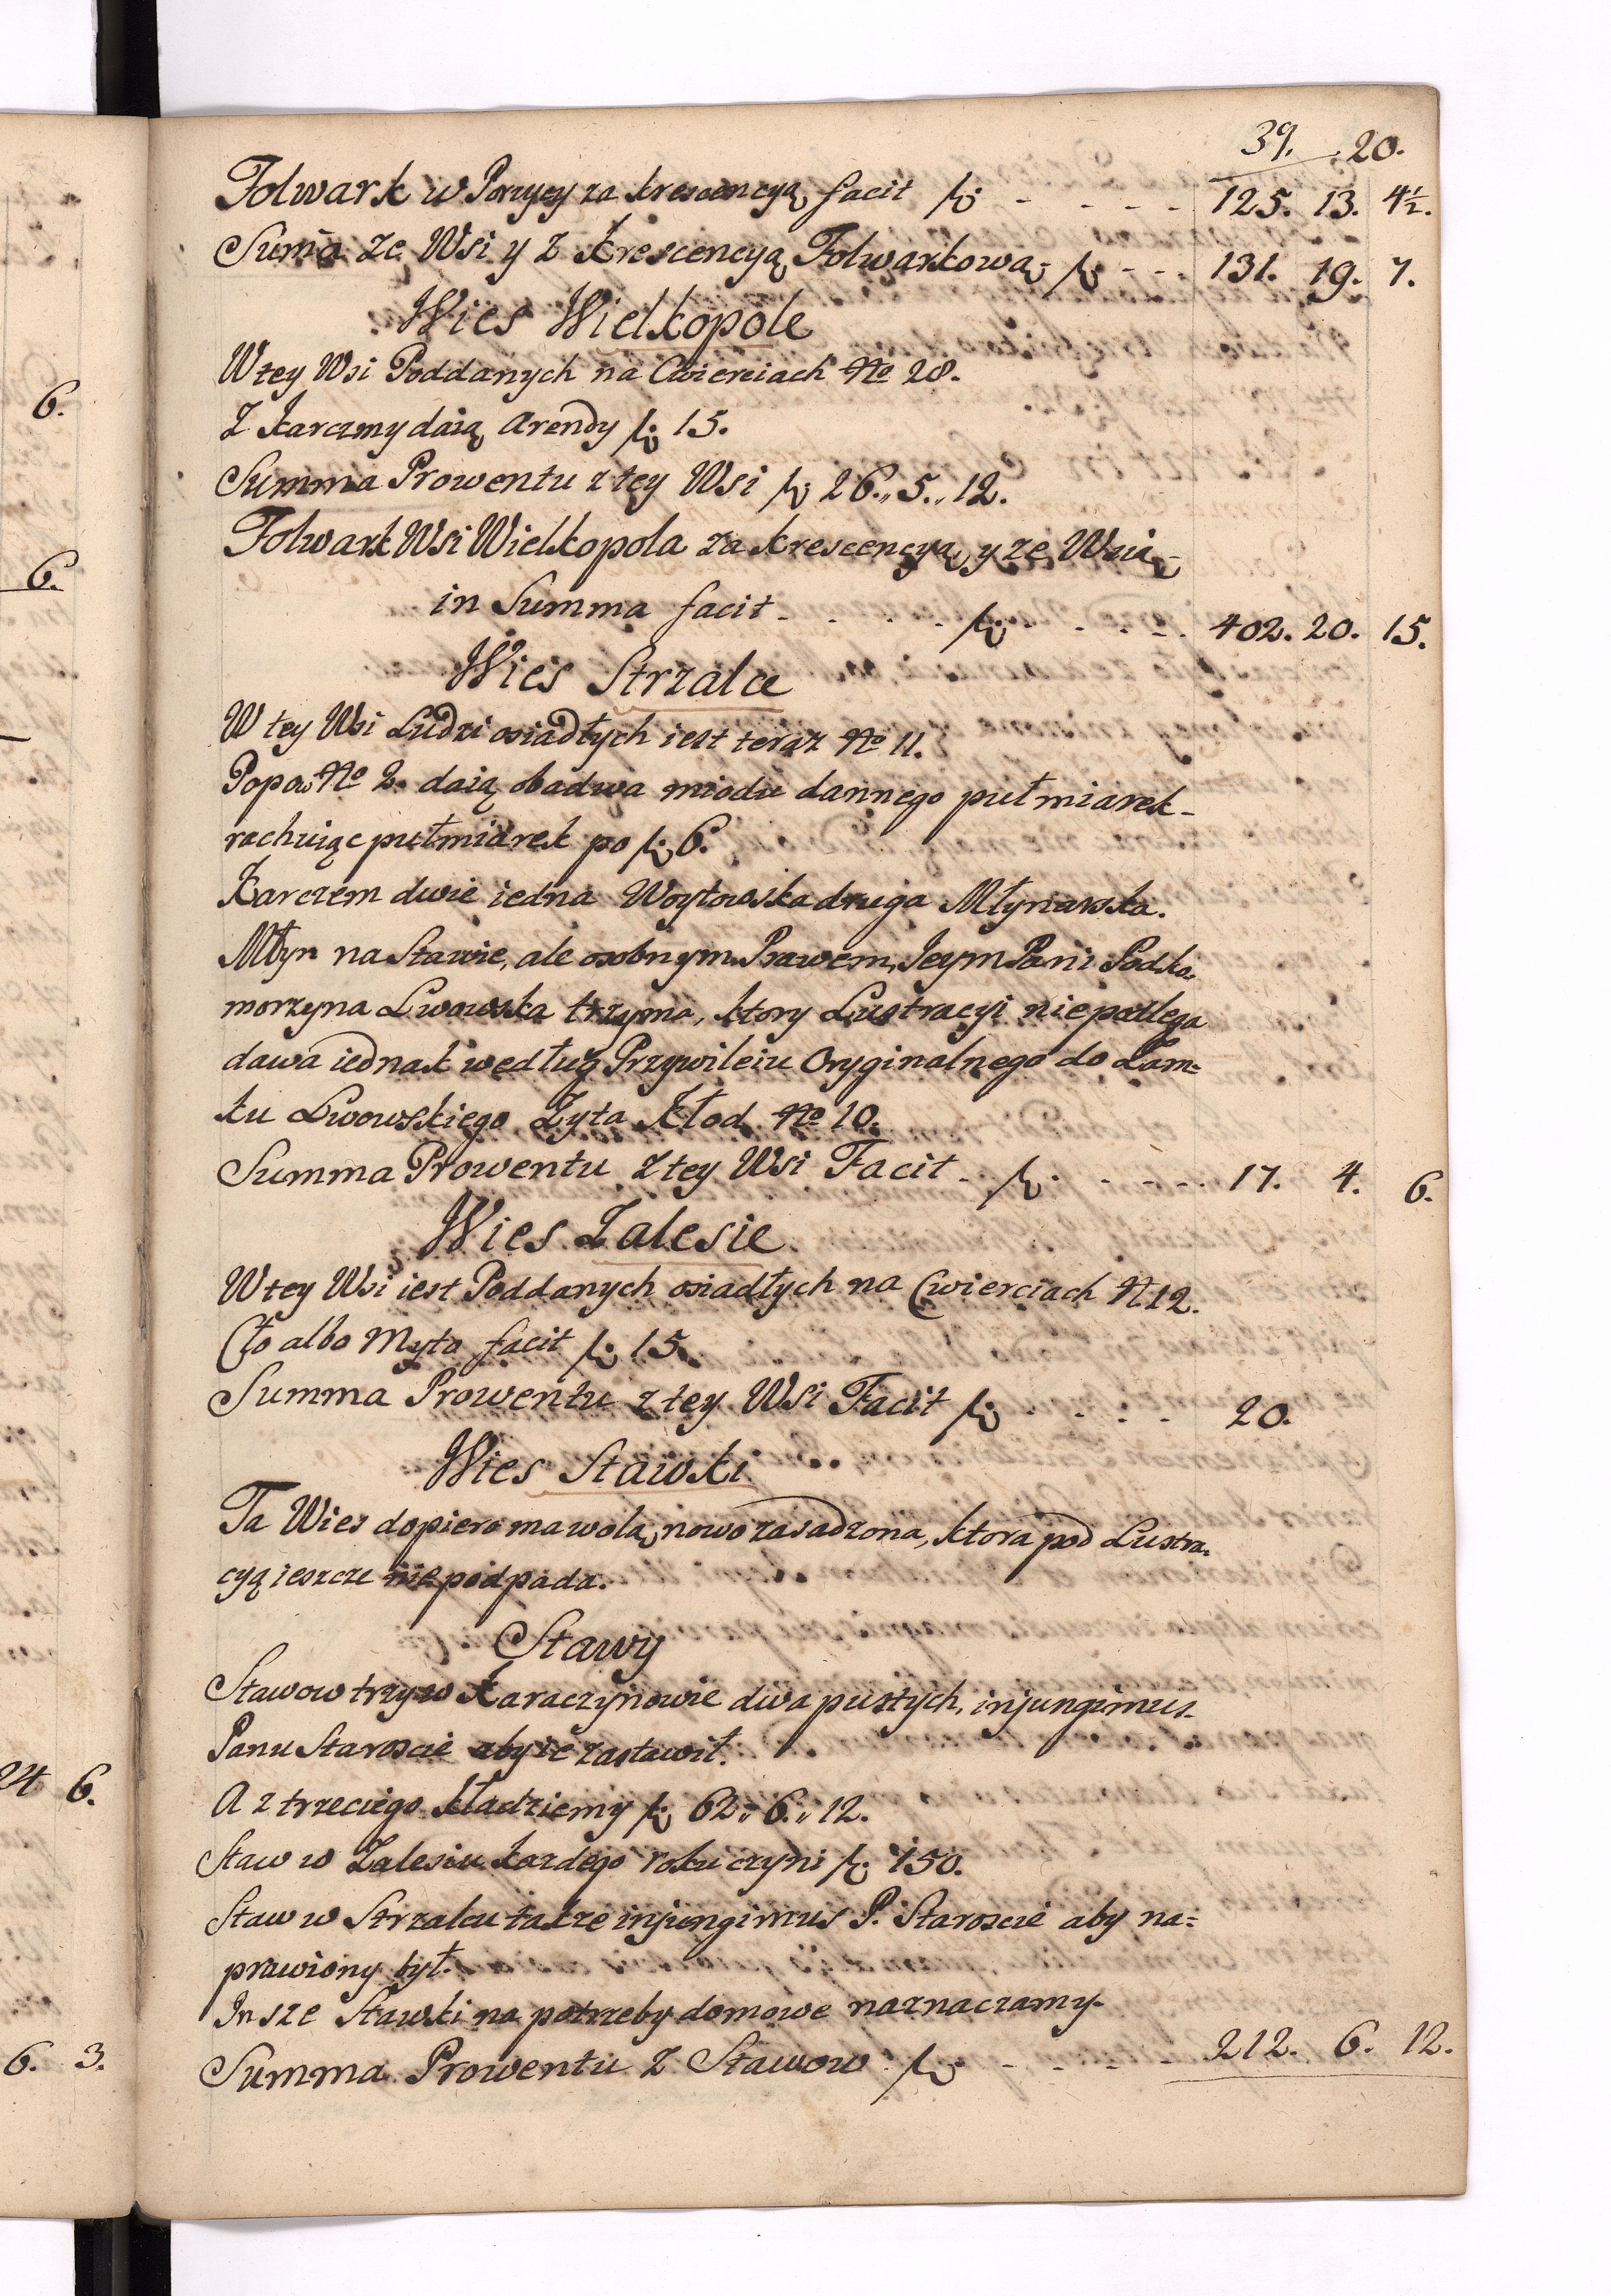 39. 20.
Folwark w Porzyczy za krescencyą facit fl: - - - - 125. 13. 4½.
Suma ze Wsi y z Krescencyą Folwarkową fl: - - - 131. 19. 7.
Wies Wielkopole
W tey Wsi Poddanych na Cwierciach No 28.
Z Karczmy daią Arendy fl: 15.
Summa Prowentu z tey Wsi fl: 26.,, 5.,, 12.
Folwark Wsi Wielkopola za krescencyą, y ze Wsią
in Summa facit - - - - fl: - - - - 402. 20. 15.
Wies Strzalce
W tey Wsi Ludzi osiadłych iest teraz No 11.
Popow No 2. daią obadwa miodu dannego pułmiarek
rachuiąc pułmiarek po fl: 6.
Karczem dwie iedna Woytowska druga Młynarska.
Młyn na Stawie, ale osobnym Prawem, Jeym Pani Podko-
morzyna Lwowska trzyma, ktory Lustracyi niepodlega
dawa iednak według Przywileiu Oryginalnego do Zam-
ku Lwowskiego Zyta Kłod No 10.
Summa Prowentu z tey Wsi Facit - fl: - - - - 17. 4. 6.
Wies Zalesie
W tey Wsi iest Poddanych osiadłych na Cwierciach N 12.
Cło albo Myto facit fl: 15.
Summa Prowentu z tey Wsi Facit fl: - - - - 20.
Wies Stawki
Ta Wies dopiero ma wolą nowo zasadzona, ktora pod Lustra-
cyą ieszcze niepodpada.
Stawy
Stawow trzy w Karaczynowie dwa pustych, injungimus
Panu Staroscie aby ie zastawił.
A z trzeciego kładziemy fl: 62.,, 6.,, 12.
Staw w Zalesiu kazdego roku czyni fl: 150.
Staw w Strzalcu takze injungimus P. Staroscie aby na-
prawiony był.
Insze Stawki na potrzeby domowe naznaczamy.
Summa Prowentu z Stawow fl: - - - - 212. 6. 12.